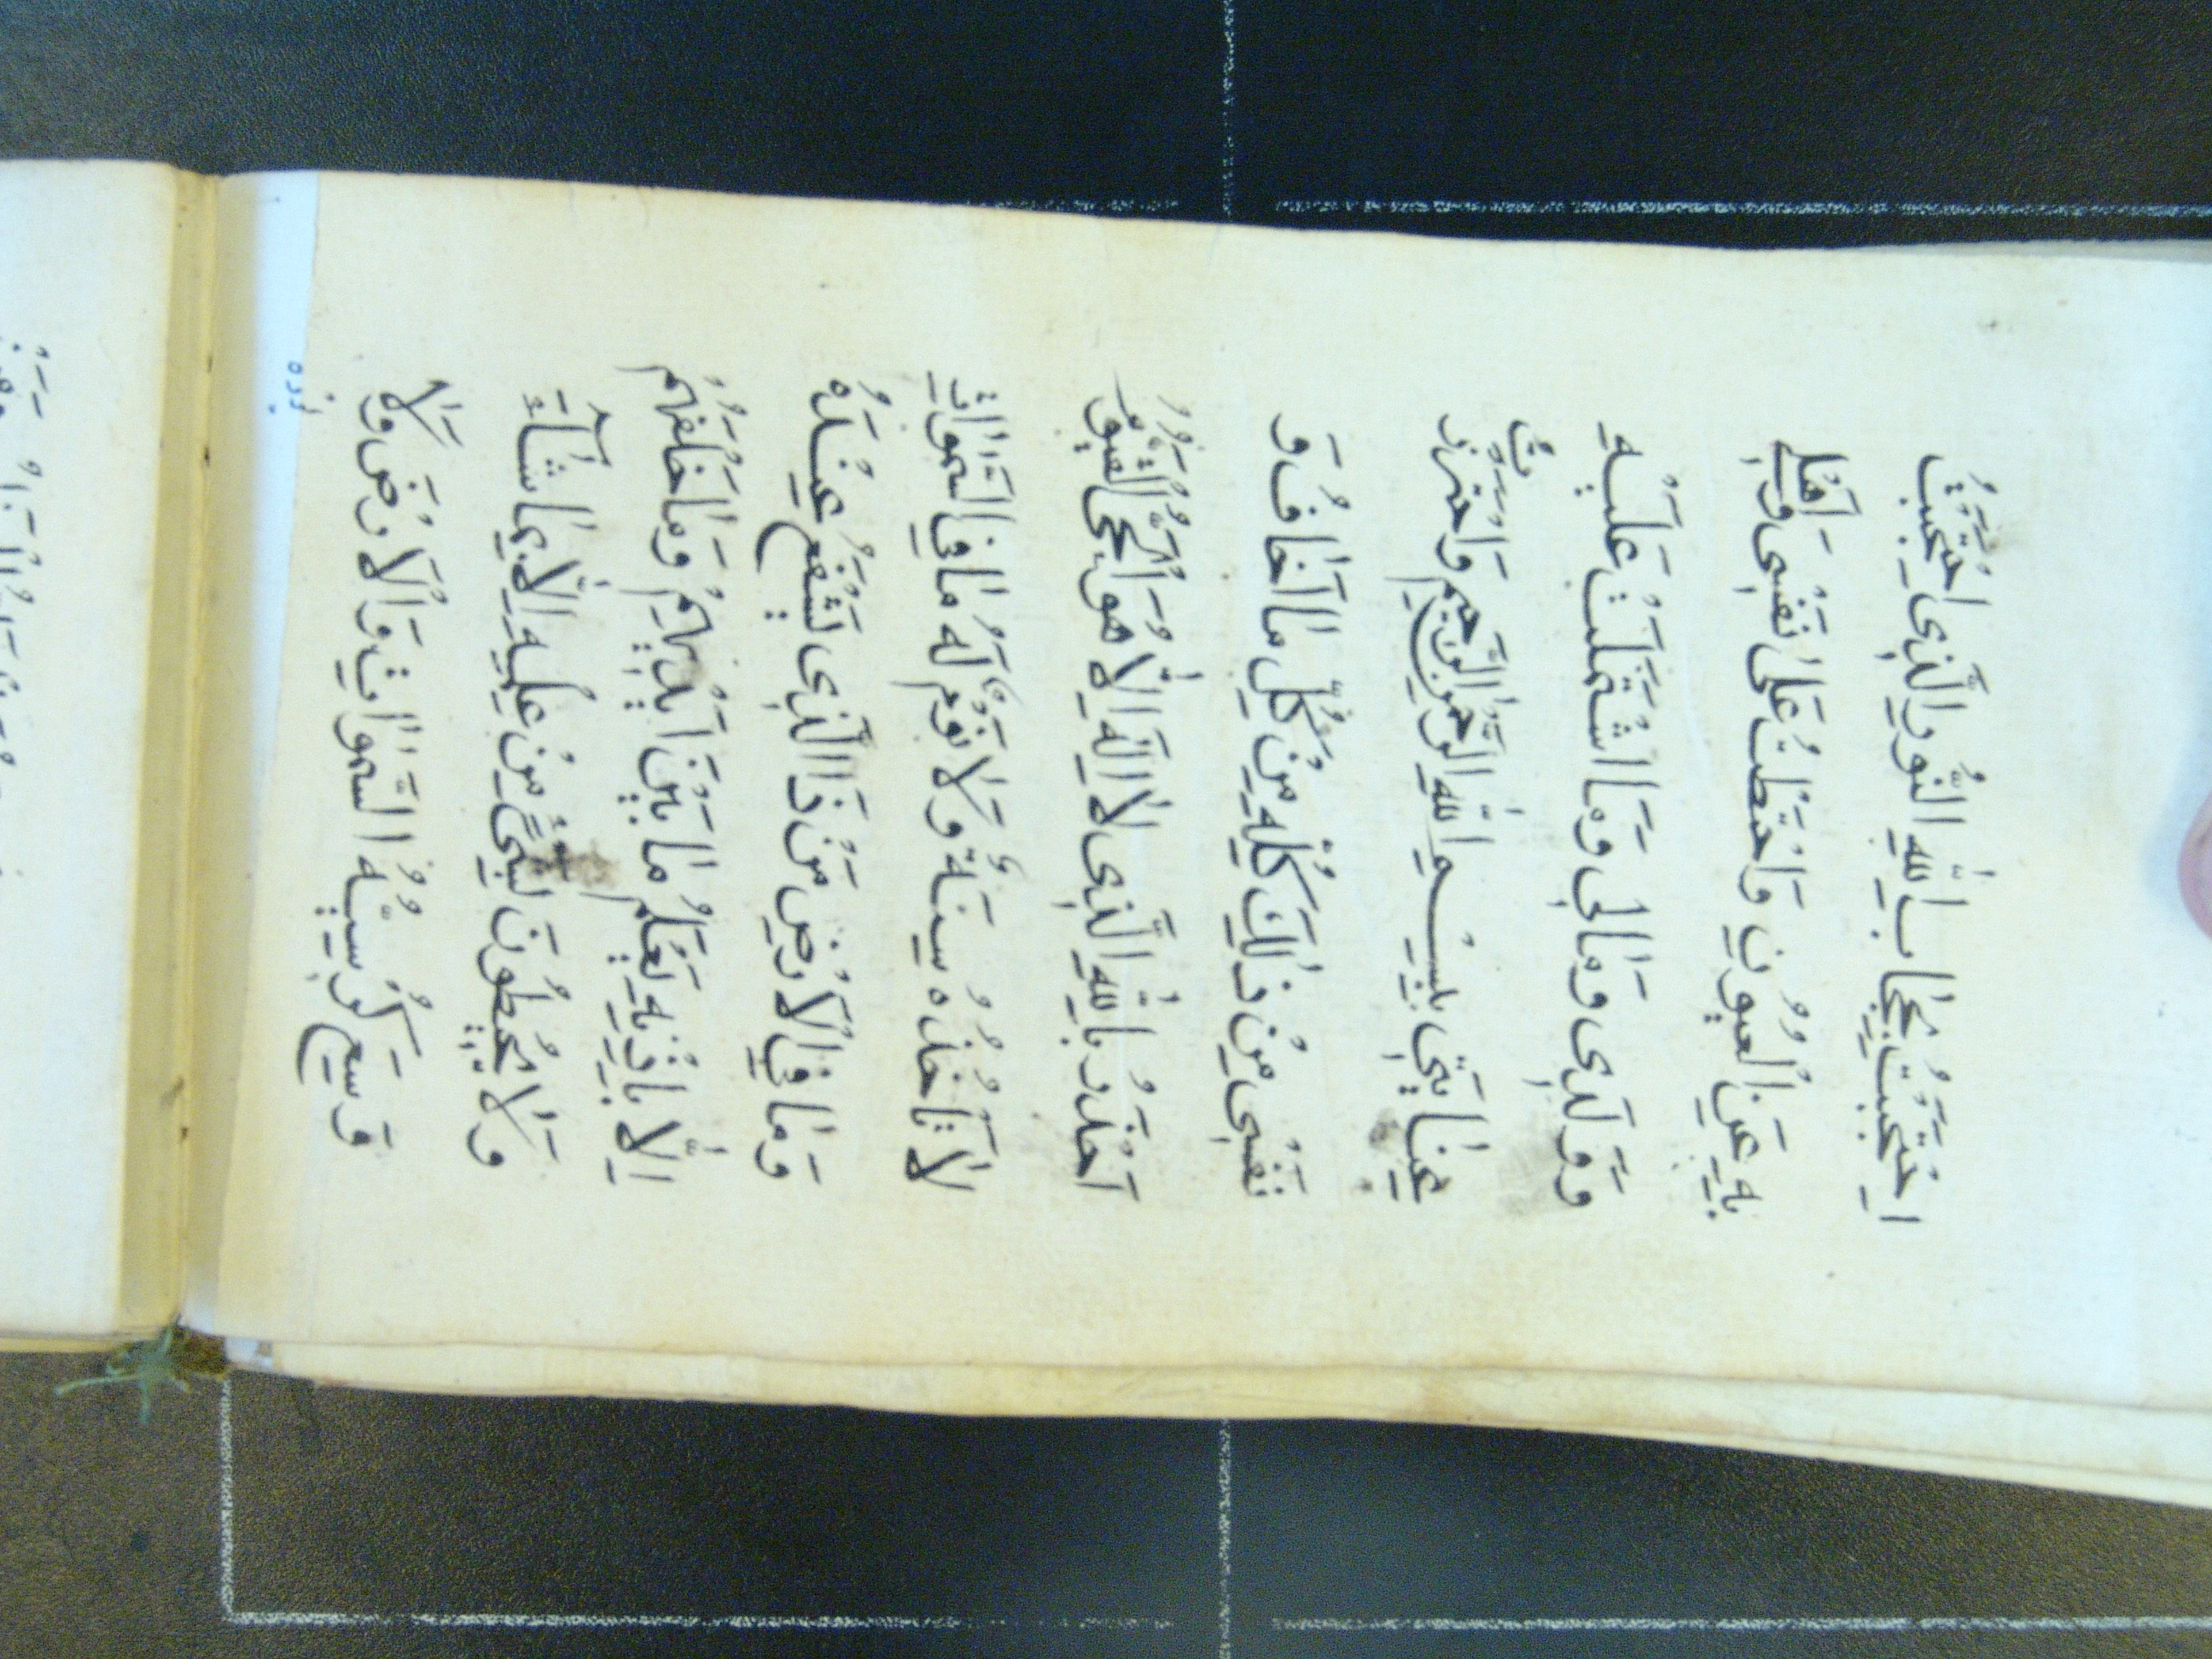 اِحْتَجَبْتُ بِحِجَابِ اللّٰهِ النُّورِ الَّذِی احْتَجَبَ
بِهِ عَنِ الْعُیُونِ وَاحْتَطْتُ عَلٰی نَفْسِی وَاَهْلِی
وَوَلَدِی وَمَالِی وَمَا اشْتَمَلَتْ عَلَیْهِ
عِنَایَتِی بِبِسْمِ اللّٰهِ الرَّحْمٰنِ الرَّحِیمِ وَاحْتَرَزْتُ
نَفْسِی مِنْ ذٰلِکَ کُلِّهِ مِنْ کُلِّ مَا اَخَافُ وَ
اَحْذَرُ بِاللّٰهِ الَّذِی لَا اِلٰهَ اِلَّا هُوَ الْحَیُّ الْقَیُّومُ
لَا تَأْخُذُهُ سِنَةٌ وَلَا نَوْمٌ لَهُ مَا فِی السَّمٰوَاتِ
وَمَا فِی الْاَرْضِ مَنْ ذَا الَّذِی یَشْفَعُ عِنْدَهُ
اِلَّا بِاِذْنِهِ یَعْلَمُ مَا بَیْنَ اَیْدِیهِمْ وَمَا خَلْفَهُمْ
وَلَا یُحِیطُونَ بِشَیْءٍ مِنْ عِلْمِهِ اِلَّا بِمَا شَآءَ
وَسِعَ کُرْسِیُّهُ السَّمٰوَاتِ وَالْاَرْضَ وَلَا